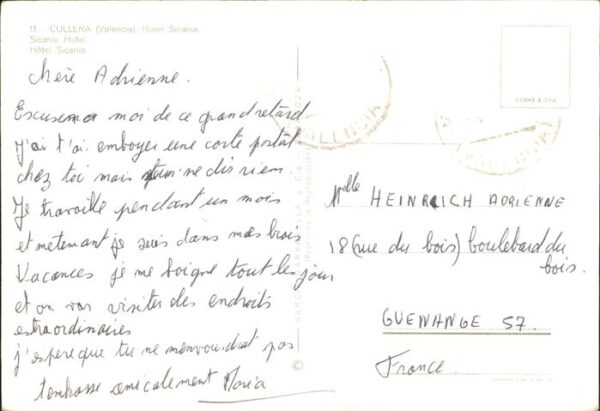 11 - CULLERA (Valencia) Hotel Sicania
Sicania Hotel
Hôtel Sicania
chere Adrienne.
Escusemoi moi de ce grand retard
J'ai t'ai emboyer une corte portal
chez toi mais tu ne dis rien.
Je travaille pendant un mois
et metenant je suis dans mas brais
Vacances je me baigne tout les jour
et on vas visiter des endroits
estraordinaires
j'espere que tu ne m'envoudrat pas
t'embrasse amicalement Maria
Mlle HEINRICH ADRIENNE
18 (rue du bois) boulebard du
bois.
GUENANGE 57.
France.
VALENCIA